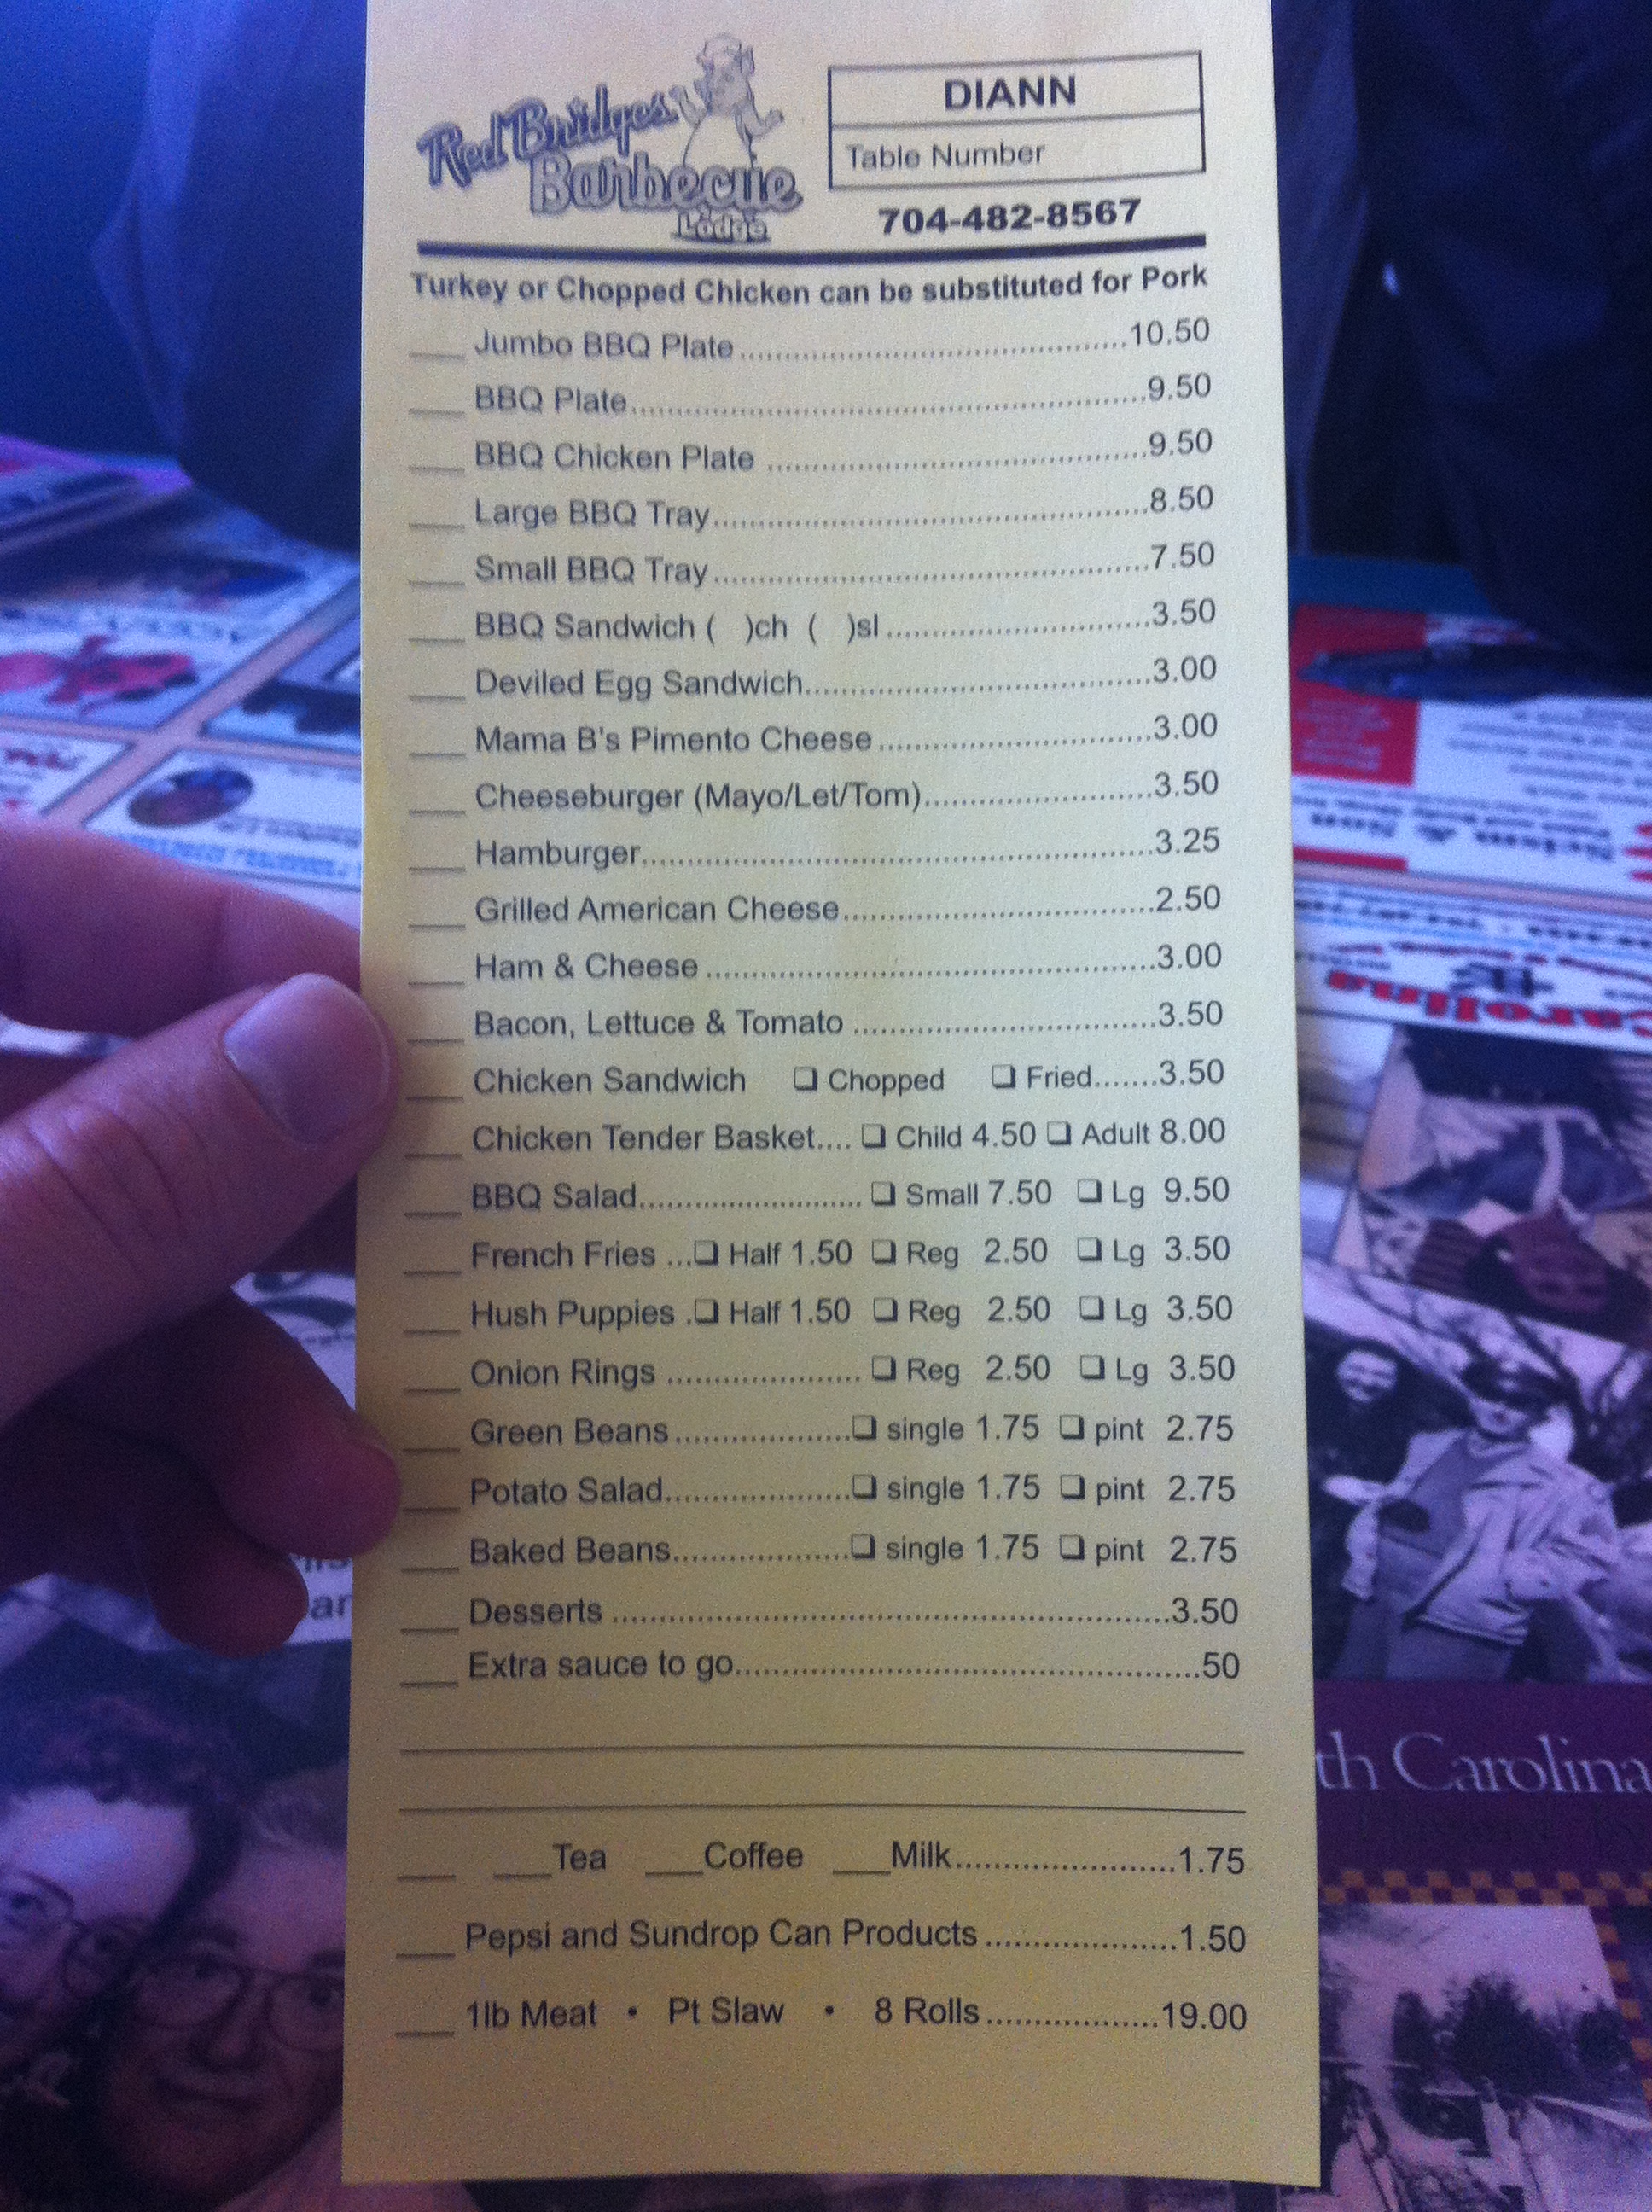 Red Bridges
Barbecue
Lodge
DIANN
Table Number
704-482-8567
Turkey or Chopped Chicken can be substituted for Pork
___ Jumbo BBQ Plate..........10.50
___ BBQ Plate..........9.50
___ BBQ Chicken Plate ..........9.50
___ Large BBQ Tray..........8.50
___ Small BBQ Tray..........7.50
___ BBQ Sandwich ( )ch ( )sl..........3.50
___ Deviled Egg Sandwich..........3.00
___ Mama B's Pimento Cheese..........3.00
___ Cheeseburger (Mayo/Let/Tom)..........3.50
___ Hamburger..........3.25
___ Grilled American Cheese..........2.50
___ Ham & Cheese ..........3.00
___ Bacon, Lettuce & Tomato ..........3.50
___ Chicken Sandwich ❏ Chopped ❏ Fried.......3.50
___ Chicken Tender Basket.... ❏ Child 4.50 ❏ Adult 8.00
___ BBQ Salad.......... ❏ Small 7.50 ❏ Lg 9.50
___ French Fries ...❏ Half 1.50 ❏ Reg 2.50 ❏ Lg 3.50
___ Hush Puppies .❏ Half 1.50 ❏ Reg 2.50 ❏ Lg 3.50
___ Onion Rings .......... ❏ Reg 2.50 ❏ Lg 3.50
___ Green Beans..........❏ single 1.75 ❏ pint 2.75
___ Potato Salad..........❏ single 1.75 ❏ pint 2.75
___ Baked Beans..........❏ single 1.75 ❏ pint 2.75
___ Desserts ..........3.50
___ Extra sauce to go...........50
___ ___Tea ___Coffee ___Milk..........1.75
___ Pepsi and Sundrop Can Products..........1.50
___ 1lb Meat • Pt Slaw • 8 Rolls..........19.00
Nelson & Son
Carolina
th Carolina